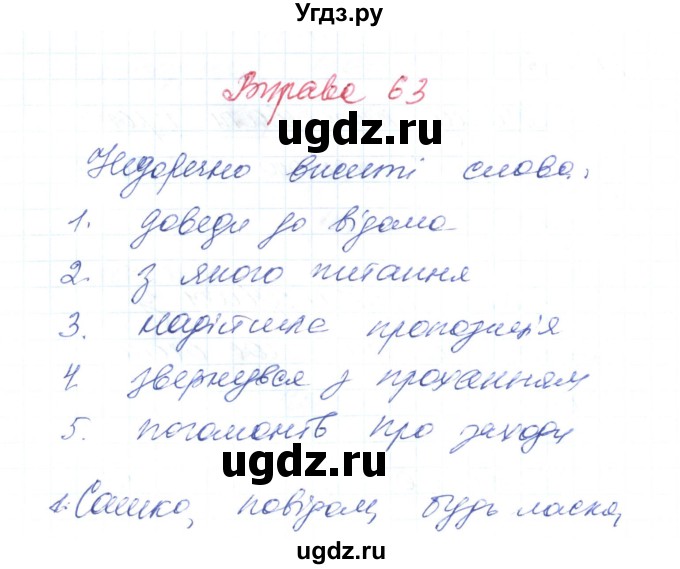 Угдз.ру
Вправа 63
ugdz.ru
Недоречно вжиті слова:
1. доведи до відома
2. з якого питання
ugdz.ru
3. надійшла пропозиція
4 звернувся з проханням
5. погомонів про заходи
ugdz.ru
1. Сашко, повідом, будь ласка,
ugdz.ru